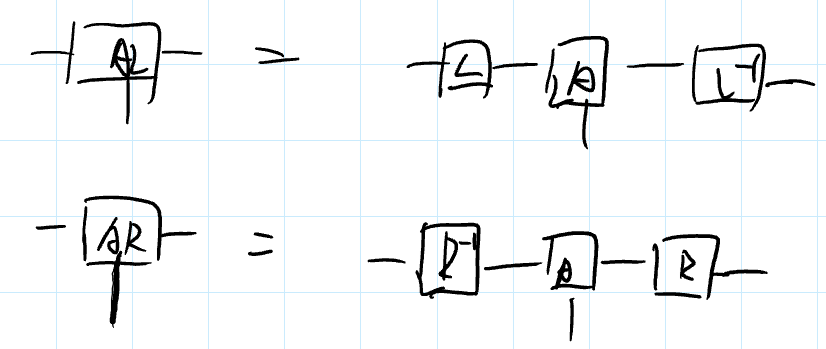 AL = L A L⁻¹
AR = R⁻¹ A R